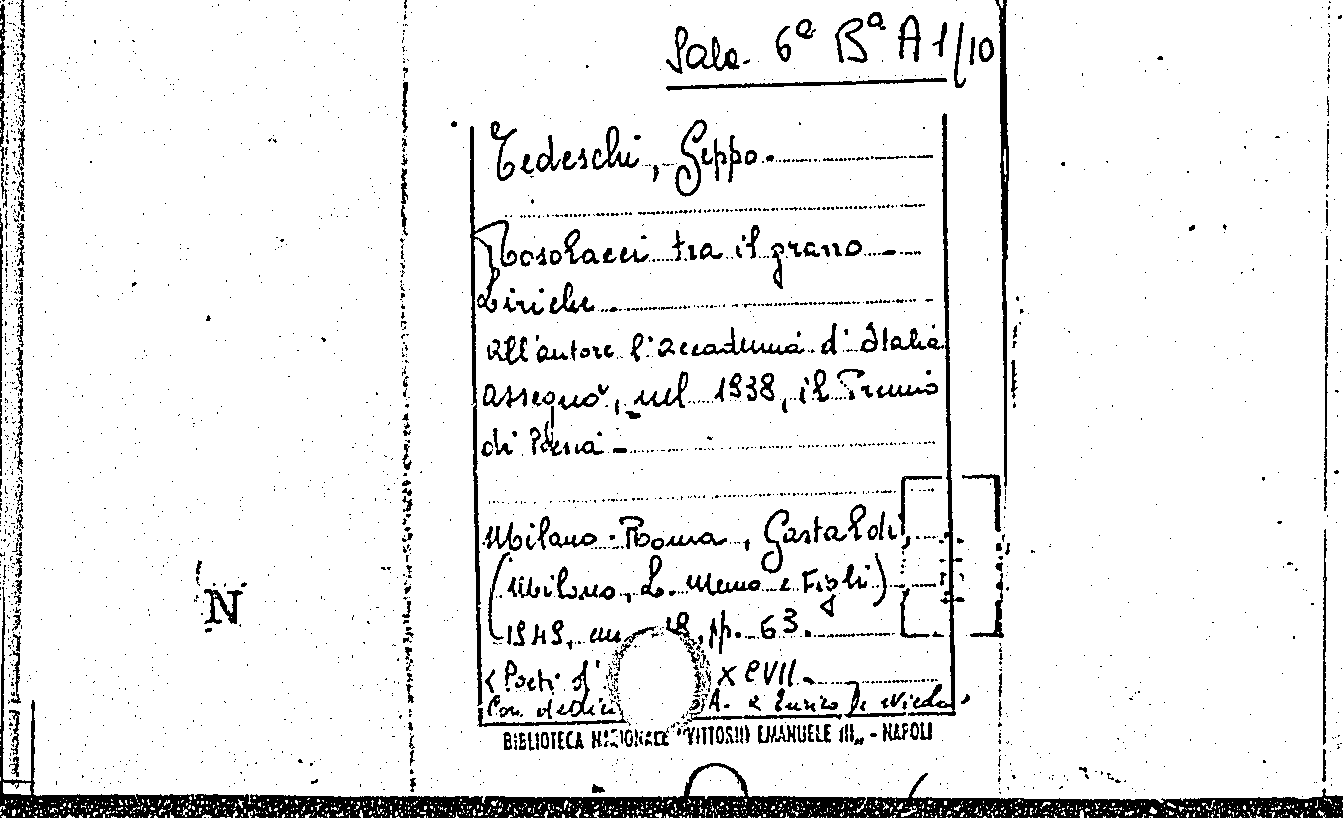 Sala 6ª Bª A 1/10
Tedeschi, Geppo.
Rosolacci tra il grano -
Liriche.
All'autore l'Accademia d'Italia
assegnò, nel 1938, il Premio
di Poesia -
Milano-Roma, Gastaldi,
(Milano, L. Memo e Figli)
1949, pp. 63.
"Poeti d' XCVII.
Con dedica A. a Enrico De Nicola
BIBLIOTECA NAZIONALE "VITTORIO EMANUELE III„ - NAPOLI
N